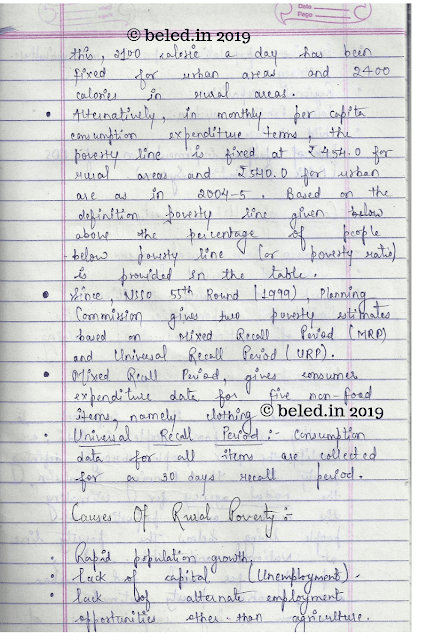 © beled.in 2019
Date
Page
this, 2100 calorie a day has been
fixed for urban areas and 2400
calories in rural areas.
• Alternatively, in monthly per capita
consumption expenditure terms, the
poverty line is fixed at ₹454.0 for
rural areas and ₹540.0 for urban
are as in 2004-5. Based on the
definition poverty line given below
above the percentage of people
below poverty line (or poverty ratio)
is provided in the table.
• Since, NSSO 55th Round (1999), Planning
Commission gives two poverty estimates
based on Mixed Recall Period (MRP)
and Universal Recall Period (URP).
• Mixed Recall Period, gives consumer
expenditure data for five non-food
items, namely clothing
© beled.in 2019
• Universal Recall Period :- Consumption
data for all items are collected
for a 30 days recall period.
Causes Of Rural Poverty :
• Rapid population growth.
• lack of capital (Unemployment).
• lack of alternate employment
opportunities other than agriculture.